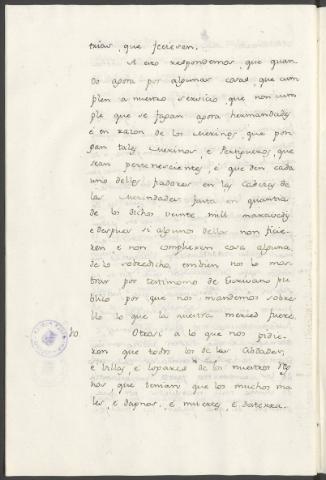 trias, que ficieren.
A esto respondemos, que quan
do agora por algunas cosas, que cum
plen a nuestro servicio que non cum
ple que se fagan agora hermandades
e en razon de los Merinos, que pon
gan tales Merinos, e Pertigueros, que
sean pertenescientes, e que den cada
uno dellos fiadores en las Cabezas de
las Merindades fasta en quantia
de los dichos veinte mil maravedis
e despues si alguno dellos non ficie
ren e non complieren cosa alguna
de lo sobredicho, embien nos lo mos
trar por testimonio de Escrivano pu
blico por que nos mandemos sobre
llo lo que la nuestra merced fuere.
Otrosi a lo que nos pidie
ron que todos los de las Cibdades,
e Villas, e Logares de los nuestros Reg
nos, que tenian que los muchos ma
les, e dapnos, e muertes, e